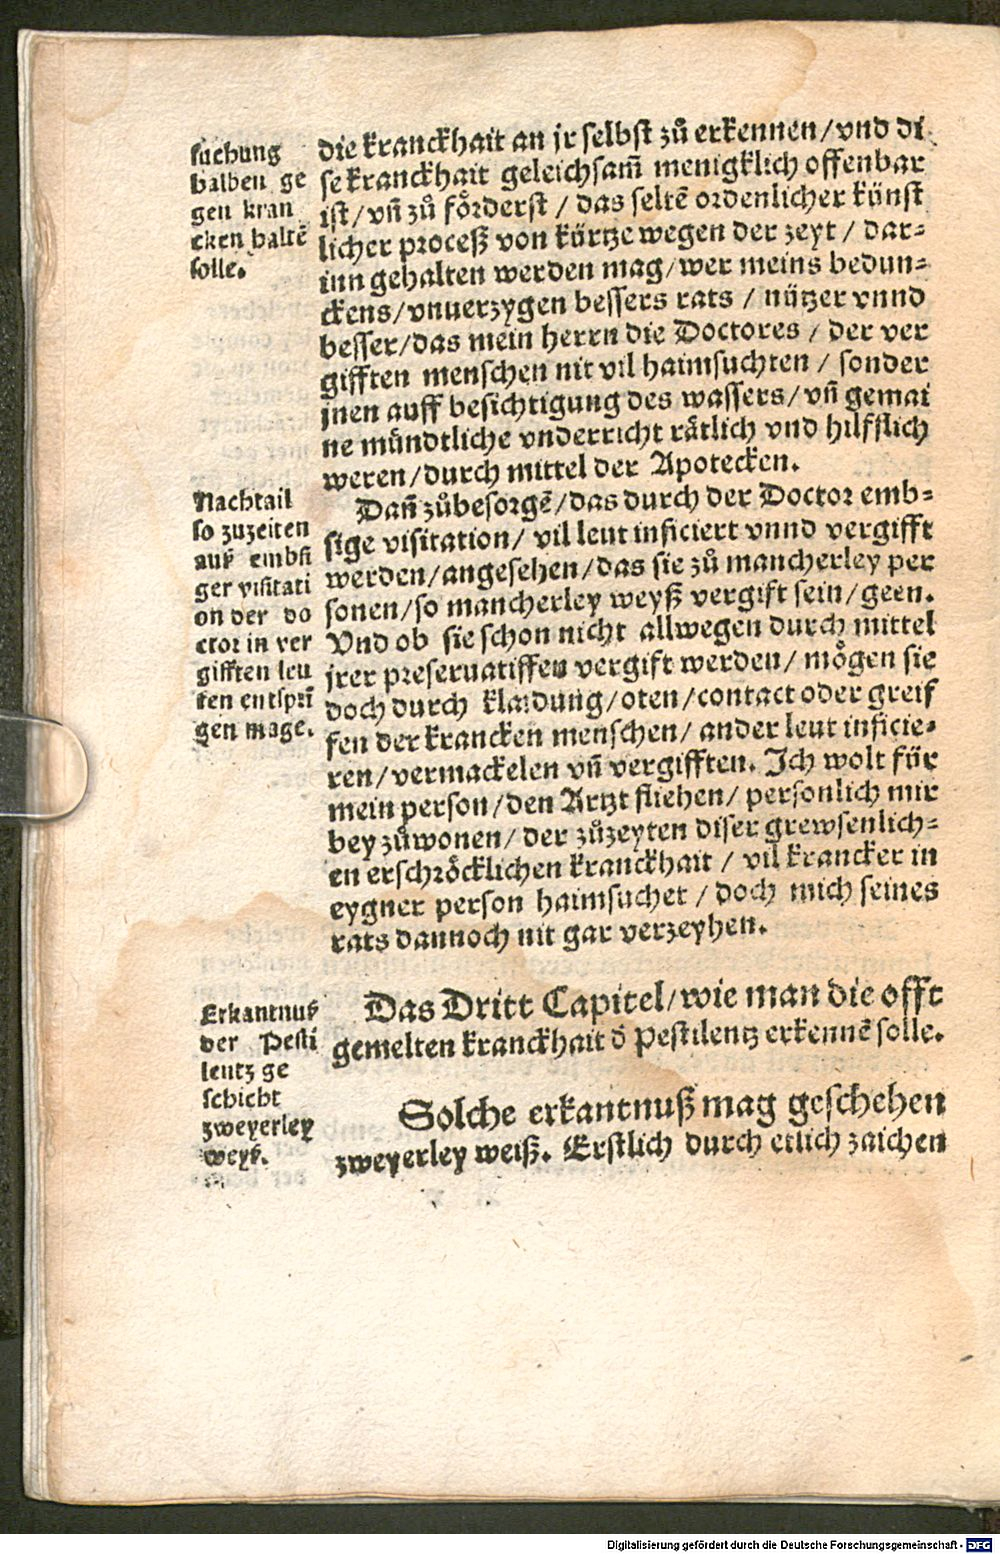 suchung
halben ge
gen kran
cken haltē
solle.
die kranckhait an jr selbst zů erkennen/vnd di
se kranckhait geleichsam̄ menigklich offenbar
ist/vn̄ zů fo̊rderst / das seltē ordenlicher künst
licher proceß von kürtze wegen der zeyt / dar-
inn gehalten werden mag/wer meins bedun-
ckens/vnuerzygen bessers rats / nützer vnnd
besser/das mein herrn die Doctores / der ver
gifften menschen nit vil haimsuchten / sonder
jnen auff besichtigung des wassers/vn̄ gemai
ne mündtliche vnderricht rätlich vnd hilfflich
weren/durch mittel der Apotecken.
Nachtail
so zuzeiten
auß embsi
ger visitati
on der do
ctor in ver
gifften leu
ten entsprī
gen mage.
Dan̄ zůbesorgē/das durch der Doctor emb-
sige visitation/ vil leut inficiert vnnd vergifft
werden/angesehen/das sie zů mancherley per
sonen/so mancherley weyß vergift sein/geen.
Vnd ob sie schon nicht allwegen durch mittel
jrer preseruatiffen vergift werden/ mo̊gen sie
doch durch klaidung/oten/contact oder greif
fen der krancken menschen/ ander leut inficie-
ren/vermackelen vn̄ vergifften. Ich wolt für
mein person/den Artzt fliehen/ personlich mir
bey zůwonen/ der zůzeyten diser grewsenlich-
en erschröcklichen kranckhait / vil krancker in
eygner person haimsuchet / doch mich seines
rats dannoch nit gar verzeyhen.
Erkantnuß
der Pesti
lentz ge
schicht
zweyerley
weyß.
Das Dritt Capitel/wie man die offt
gemelten kranckhait d̄ Pestilentz erkennē solle.
Solche erkantnuß mag geschehen
zweyerley weiß. Erstlich durch etlich zaichen
Digitalisierung gefördert durch die Deutsche Forschungsgemeinschaft - DFG